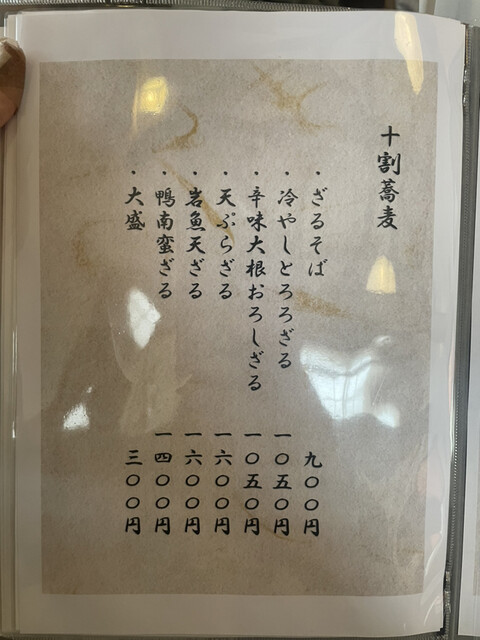 十割蕎麦
・ざるそば 九〇〇円
・冷やしとろろざる 一〇五〇円
・辛味大根おろしざる 一〇五〇円
・天ぷらざる 一六〇〇円
・岩魚天ざる 一六〇〇円
・鴨南蛮ざる 一四〇〇円
・大盛 三〇〇円